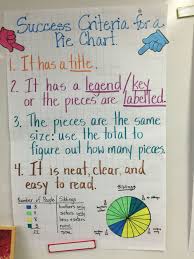 Success Criteria for a
Pie Chart.
1. It has a title.
2. It has a legend/key
or the pieces are labelled.
3. The pieces are the same
size: use the total to
figure out how many pieces.
4. It is neat, clear, and
easy to read.
Number of People
Siblings
Siblings
brothers only
sisters only
both
none
TOTAL